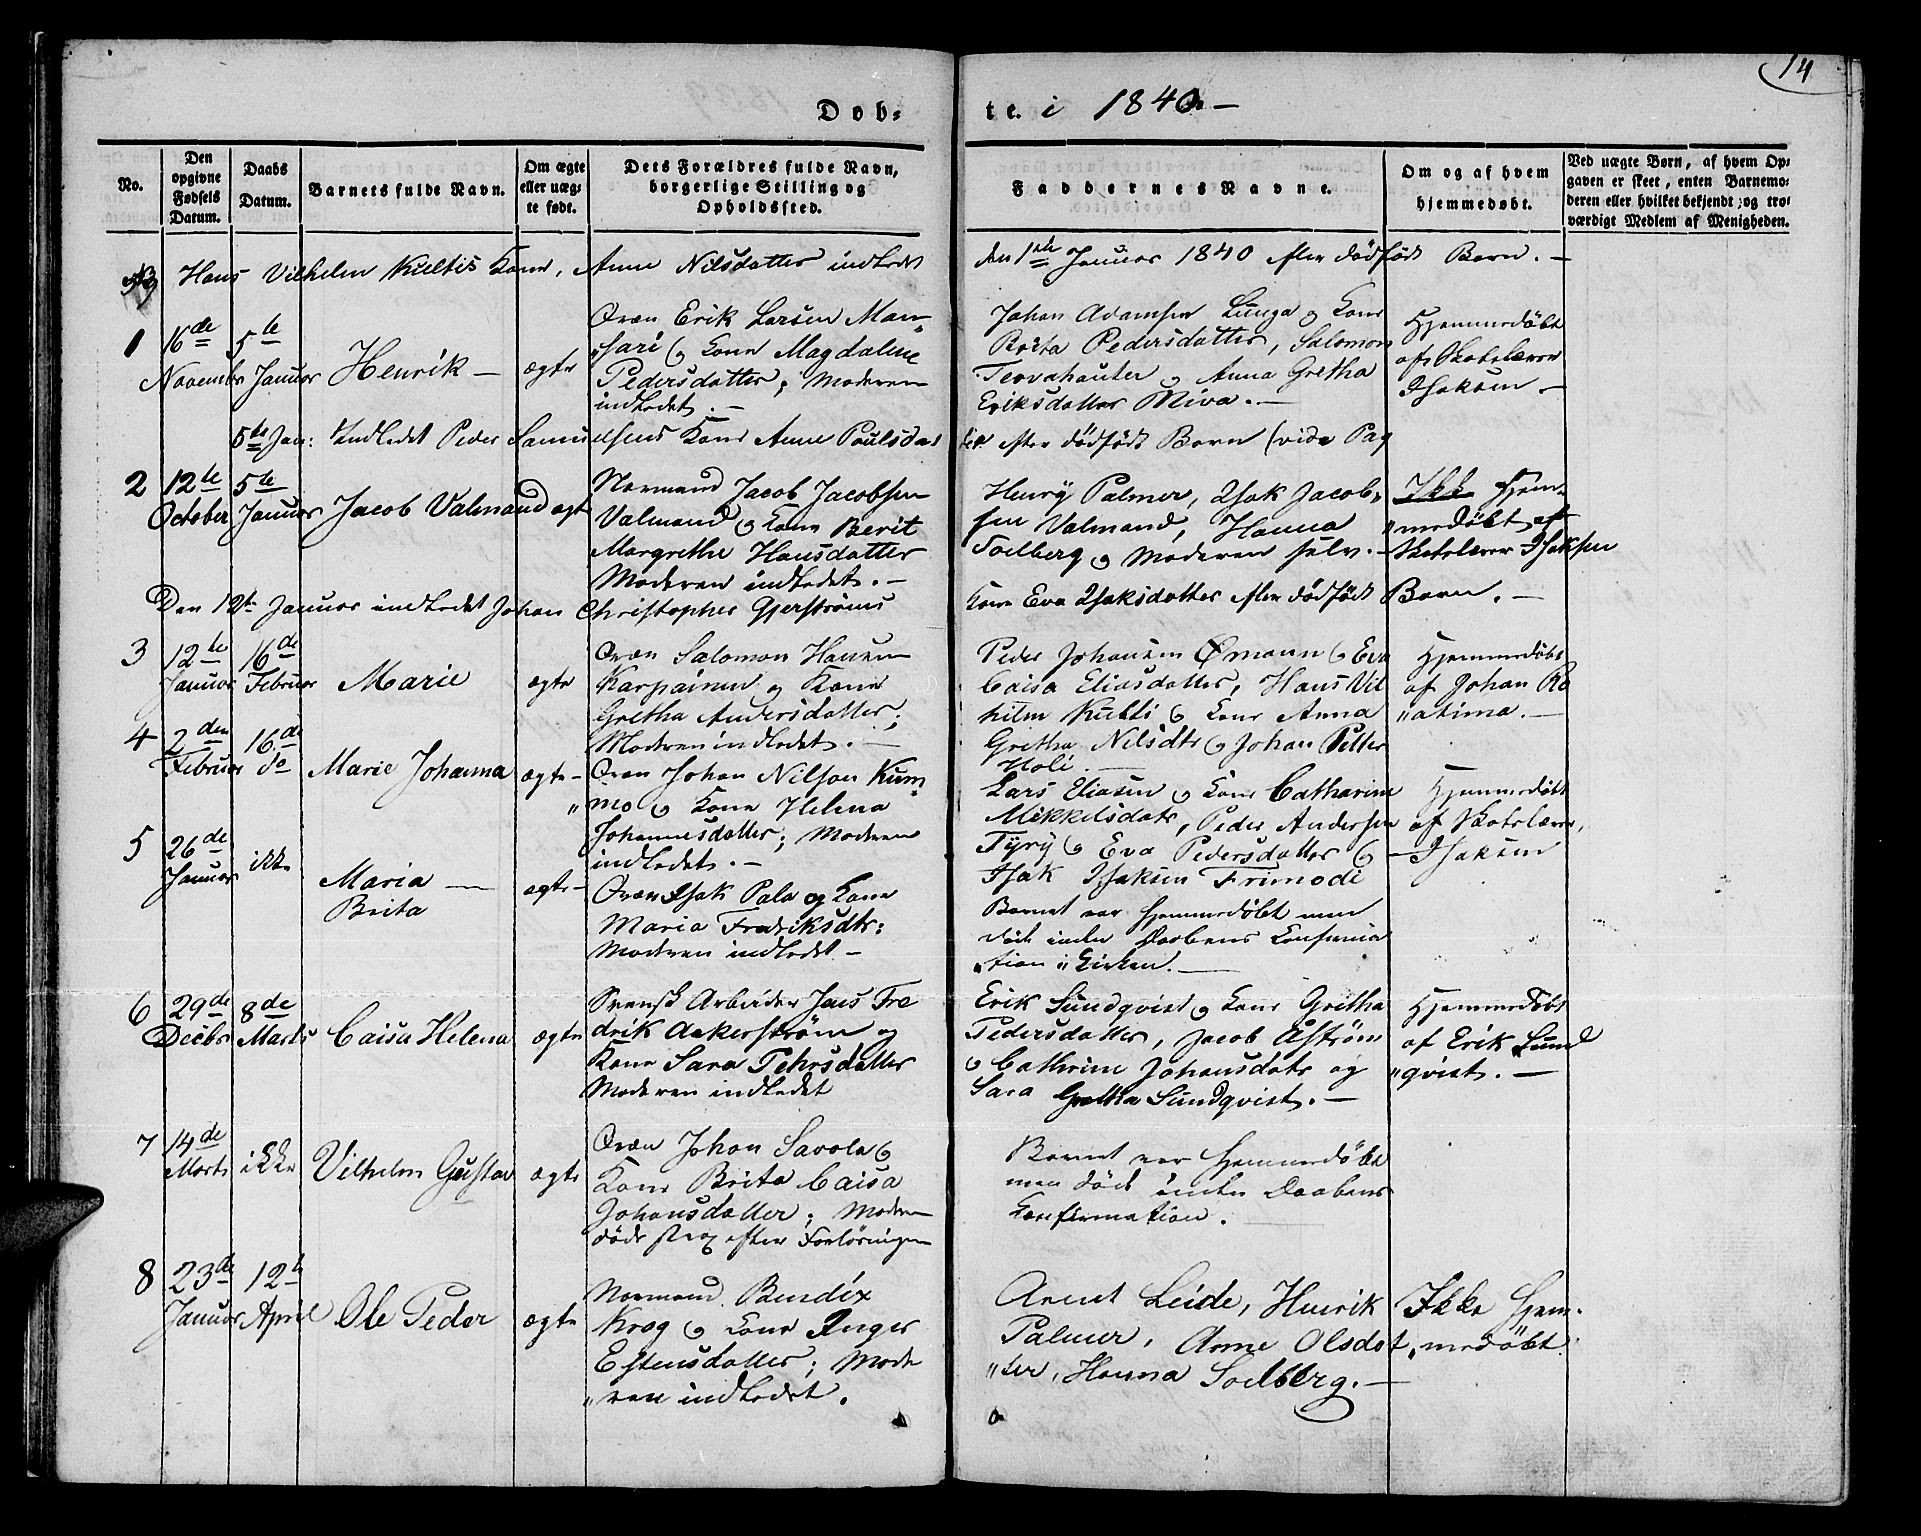 14
Døb-
te. i 1840 —
No.
Den
opgivne
Fødsels
Datum.
Daabs
Datum.
Barnets fulde Navn.
Om ægte
eller uæg-
te født.
Dets Forældres fulde Navn,
borgerlige Stilling og
Opholdssted.
Faddernes Navne.
Om og af hvem
hjemmedøbt.
Ved uægte Børn, af hvem Op-
gaven er skeet, enten Barnemo-
deren eller hvilket bekjendt og tro-
værdigt Medlem af Menigheden.
Hans Vilhelm Kone, Anne Nilsdatter indledet
den 1ste Januar 1840 efter dødfødt Barn. —
1
16de
November
5te
Januar
Henrik —
ægte
Qvæn Erik Larsen Man-
og Kone Magdalene
Pedersdatter; Moderen
indledet. —
Johan Adamsen Lunga og Kone
Brita Pedersdatter, Salomon
og Anna Gretha
Eriksdatter Niva. —
Hjemmedøbt
af Skolelærer
Isaksen —
5te Jan: Indledet Peder Samuelsens Kone Anne Poulsdat
ter efter dødfødt Barn (vide Pag
2
12te
October
5te
Januar
Jacob Valmand
ægt
Normand Jacob Jacobsen
Valmand og Kone Berit
Margrethe Hansdatter
Moderen indledet. —
Henry Palmer, Isak Jacob-
sen Valmand, Hanna
Soelberg og Moderen selv. —
Ikke Hjem-
medøbt af
Skolelærer Isaksen
Den 12te Januar indledet Johan Christopher Gjerstrøms
Kone Eva Isaksdatter efter dødfødt Barn. —
3
12te
Januar
16de
Februar
Marie
ægte
Qvæn Salomon Hansen
Karpainen og Kone
Gretha Andersdatter;
Moderen indledet. —
Peder Johansen Ømann og Eva
Caisa Eliasdatter, Hans Vil
helm og Kone Anna
Gretha Nilsdtr og Johan Petter
Holi
Hjemmedøbt
af Johan Ro
"atima. —
4
2den
Februar
16de
do
Marie Johanna
ægte —
Qvæn Johan Nilsen Kum-
"mo og Kone Helena
Johannesdatter; Moderen
indledet. —
Lars Eliasen og Kone Catharine
Mikkelsdatr, Peder Andersen
Tyry og Eva Pedersdatter og
Isak Isaksen Frimodi
Hjemmedøbt
af Skolelærer,
— Isaksen
5
26de
Januar
ikke
Maria —
Brita
ægte —
Qvæn Isak Pala og Kone
Maria Fredriksdtr:
Moderen indledet —
Barnet var Hjemmedøbt men
døde inden Daabens Confirma
"tion i Kirken. —
6
29de
Decbr
8de
Marts
Caisa Helena
ægte
Svensk Arbeider Jens Fre
drik Aakerstrøm og
Kone Sara Pehrsdatter
Moderen indledet
Erik Sundqvist og Kone Gretha
Pedersdatter, Jacob Åström
og Cathrine Johansdatr og
Sara Gretha Sundqvist. —
Hjemmedøbt
af Erik Sund
"qvist. —
7
14de
Marts
ikke
Vilhelm Gustav
ægte
Qvæn Johan Savola og
Kone Brita Caisa
Johansdatter; Moderen
døde strax efter Forløsningen
Barnet var Hjemmedøbt
men døde inden Daabens
Confirmation.
8
23de
Januar
12te
April
Ole Peder
ægte
Normand Bendix
Krog og Kone Inger
Estensdatter; Mode
"ren indledet.
Arent Leide, Henrik
Palmer, Anne Olsdat
"ter, Hanna Soelberg. —
Ikke Hjem-
"medøbt.